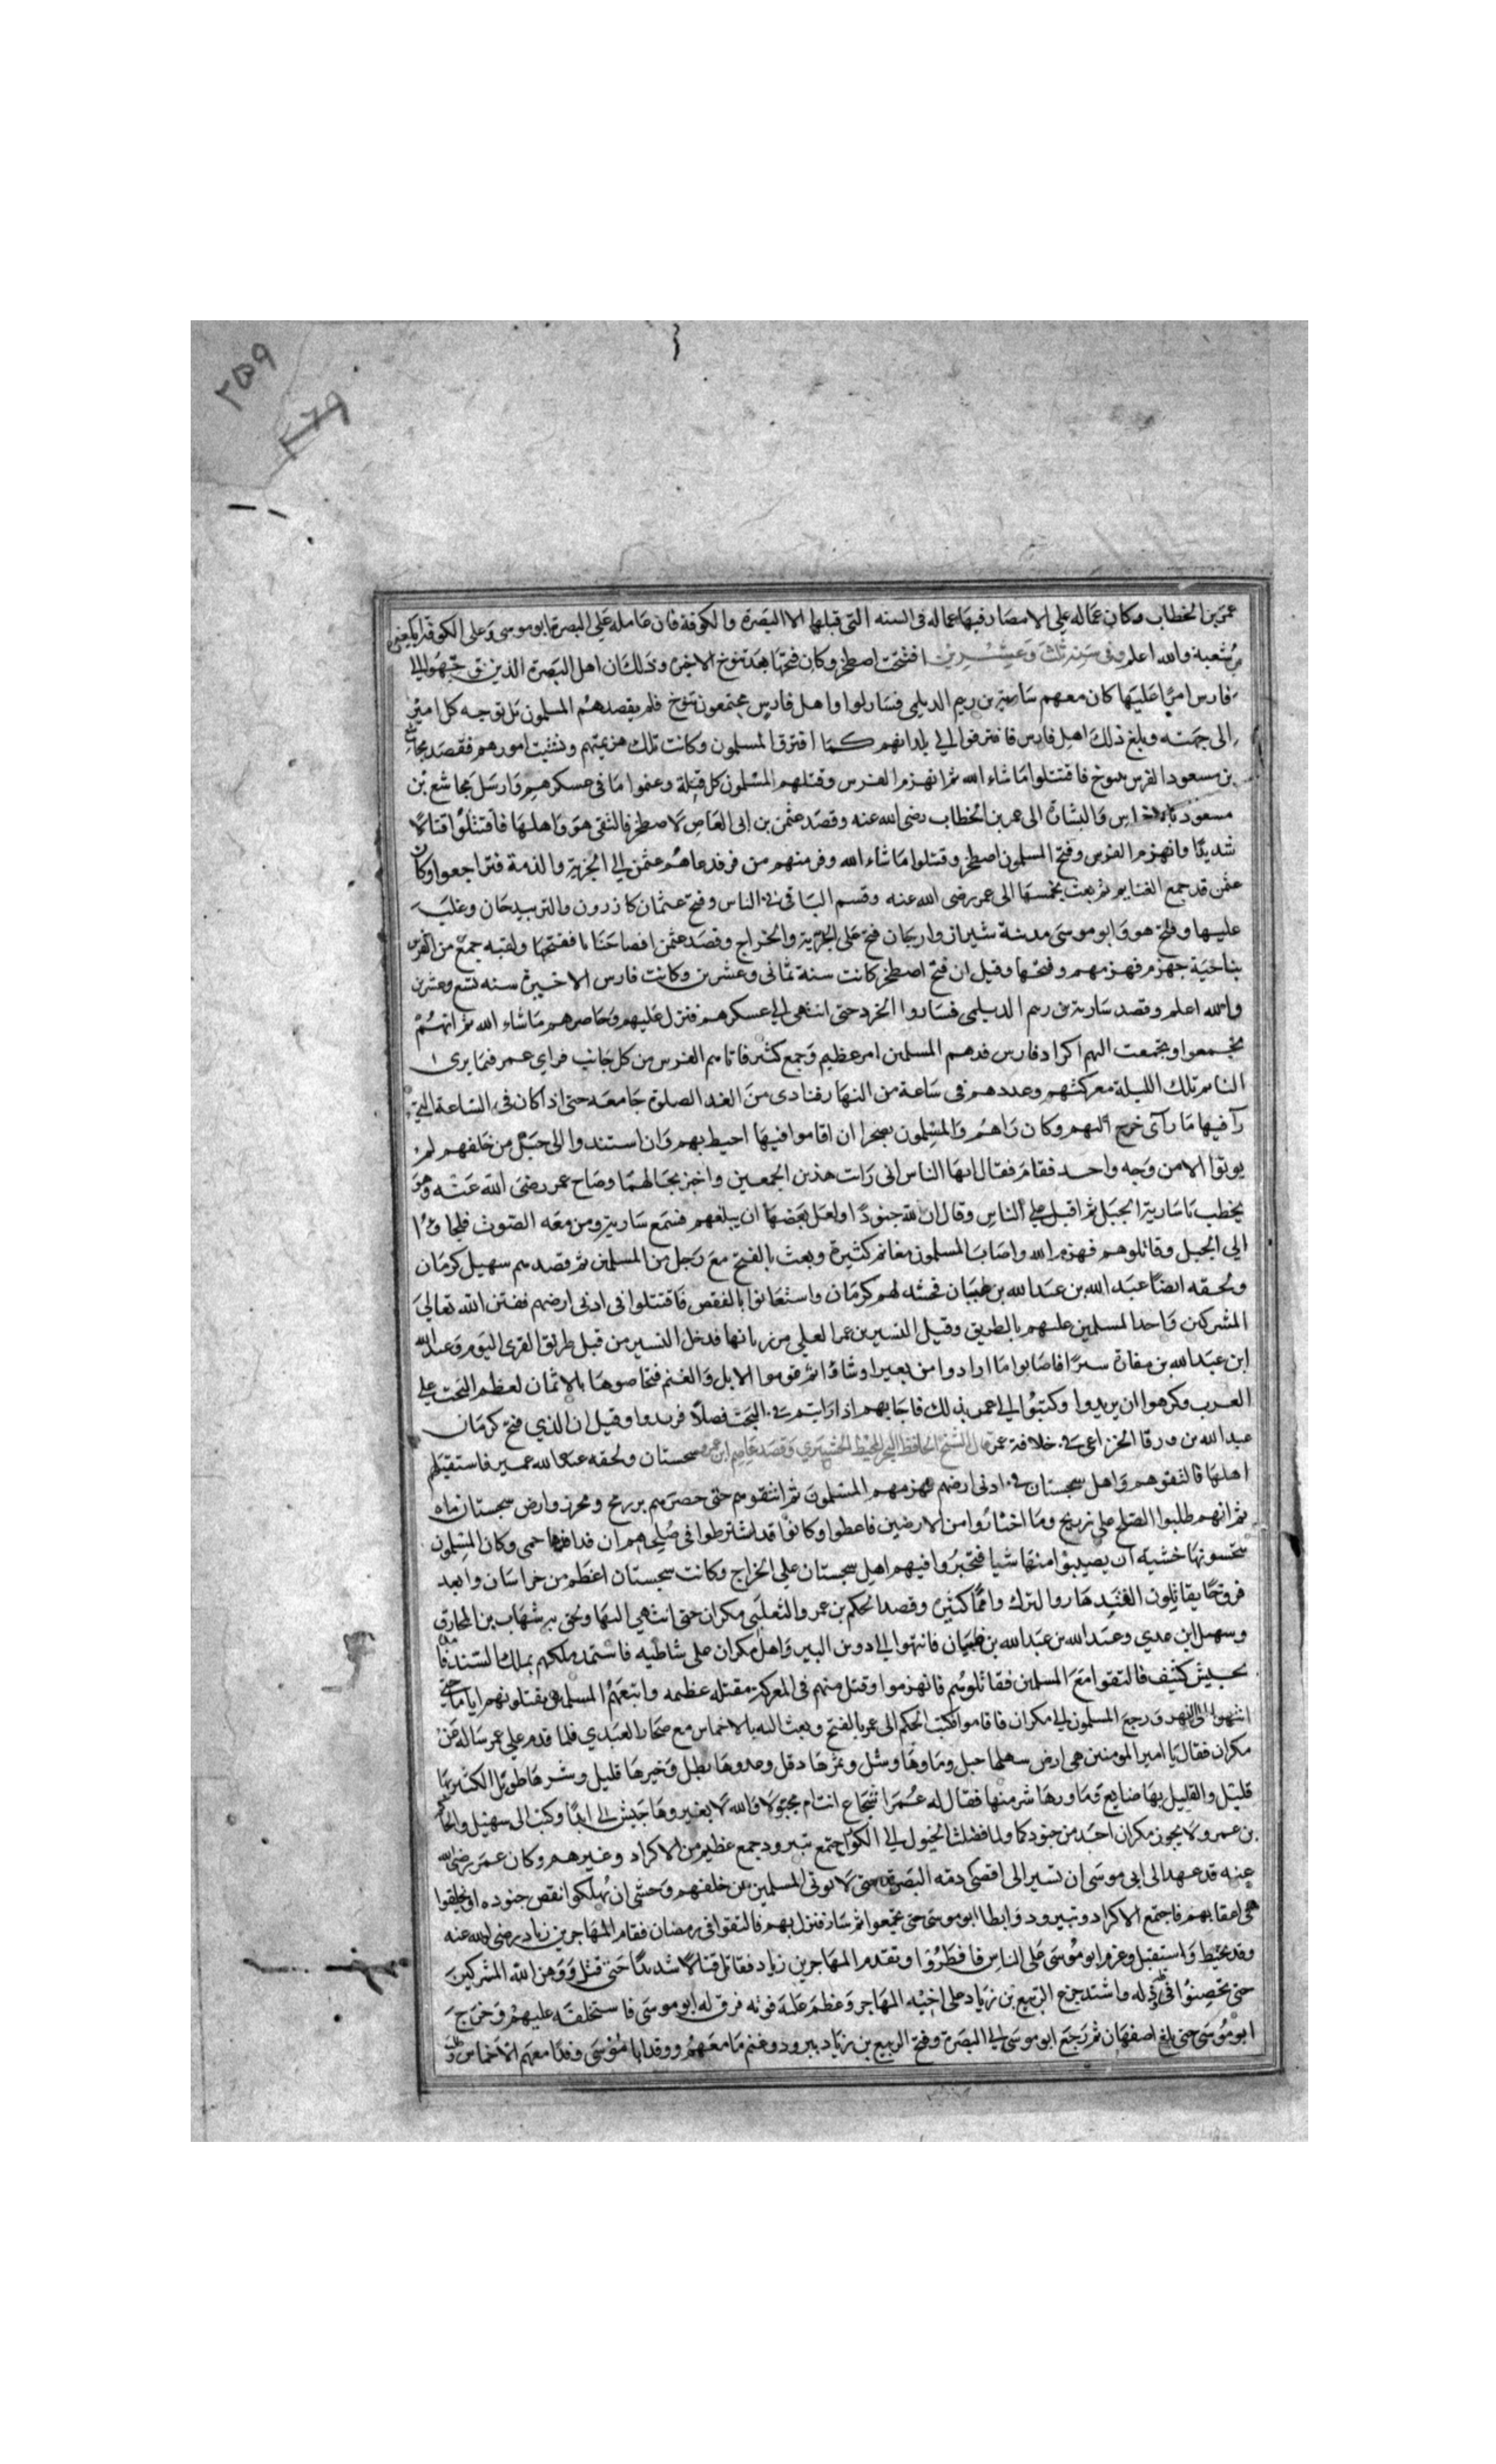 ٢٥٩
٢٦٩
عمر بن الخطاب وكان عماله على الامصار فيها عماله فى السنه التى قبلها الا البصرة والكوفة فان عامله على البصرة ابو موسى وعلى الكوفة المغيره
بن شعبة والله اعلم وفى سنه ثلث وعشرين افتتحت اصطخر وكان فتحها بعد توخ الاخيره وذلك ان اهل البصرة الذين توجهوا الي
فارس امرا عليها كان معهم سارية بن زنيم الديلمى فساروا واهل فارس مجتمعون بتوخ فلم يقصدهم المسلمون بل توجه كل امير
الى جهته وبلغ ذلك اهل فارس فافترقوا الي بلدانهم كما افترق المسلمون وكانت تلك هزيمتهم وتشتت امورهم فقصد مجاشع
بن مسعود الفرس بتوخ فاقتتلوا ما شاء الله ثم انهزم الفرس وقتلهم المسلمون كل قتلة وغنموا ما فى عسكرهم وارسل مجاشع بن
مسعود بالاخماس والبشارة الى عمر بن الخطاب رضى الله عنه وقصد عثمن بن ابى العاص لاصطخر فالتقى هو واهلها فاقتتلوا قتالا
شديدا وانهزم الفرس وفتح المسلمون اصطخر وقتلوا ما شاء الله وفر منهم من فر فدعاهم عثمن الي الجزية والذمة فتراجعوا وكان
عثمن قد جمع الغنايم ثم بعث بخمسها الى عمر رضى الله عنه وقسم الباقى فى الناس وفتح عثمان كازرون والنوبندجان وغلب
عليها وفتح هو وابو موسى مدينة شيراز وارجان فتح على الجزية والخراج وقصد عثمن ايضا جنابا ففتحها ولقيه جمع من الفرس
بناحية جهرم فهزمهم وفتحها وقيل ان فتح اصطخر كانت سنة ثمانى وعشرين وكانت فارس الاخيرة سنه تسع وعشرين
والله اعلم وقصد سارية بن زنيم الديلمى فساروا ابجرد حتى انتهى الى عسكرهم فنزل عليهم وحاصرهم ما شاء الله ثم انهم
تجمعوا وتجمعت اليهم اكراد فارس فدهم المسلمين امر عظيم وجمع كثير فاتاهم الفرس من كل جانب فراي عمر فيما يرى ا
الناس تلك الليلة معركتهم وعددهم فى ساعة من النهار فنادى من الغد الصلوة جامعه حتى اذا كان فى الساعة التى
رآ فيها ما رآى خرج اليهم وكان رآهم والمسلمون بصحرا ان اقاموا فيها احيط بهم وان استندوا الى جبل من خلفهم لم
يوتوا الا من وجه واحد فقام فقال ايها الناس انى رات هذين الجمعين واخبر بحالهما وصاح عمر رضى الله عنه وهو
يخطب يا سارية الجبل ثم اقبل على الناس وقال ان لله جنودا ولعل بعضها ان يبلغهم فسمع سارية ومن معه الصوت فلجاوا
الي الجبل وقاتلوهم فهزمهم الله واصاب المسلمون مغانم كثيرة وبعث بالفتح مع رجل من المسلمين ثم قصد سهيل كرمان
ولحقه ايضا عبد الله بن عبد الله بن عتبان فحشد لهم كرمان واستعانوا بالقفص فاقتتلوا فى ادنى ارضهم ففتن الله تعالى
المشركين واخذ المسلمين عليهم بالطريق وقيل النسير بن عمر العجلي مرزبانها فدخل النسير من قبل طريق القرى اليوم وعبد الله
ابن عبد الله بن مفازة سيرا فاصابوا ما ارادوا من بعير او شاة ثم قوموا الابل والغنم فتحاصوها بالاثمان لعظم البخت على
العرب وكرهوا ان يزيدوا وكتبوا الي عمر بذلك فاجابهم اذا رايتم فى البخت فضلا فزيدوا وقيل ان الذي فتح كرمان
عبد الله بن ورقا الخزاعى فى خلافة عمر قال الشيخ الحافظ وقصد عاصم ابن عمرو سجستان ولحقه عبد الله عمير فاستقبلهم
اهلها فالتقوهم واهل سجستان فى ادنى ارضهم فهزمهم المسلمون ثم اتبعوهم حتى حصروهم بزرنج ومخروا ارض سجستان ماه
ثم انهم طلبوا الصلح على زرنج وما اختاروا من الارضين فاعطوا وكانوا قد اشترطوا فى صلحهم ان فدافدها حمى وكان المسلمون
يتحسونها خشيه ان يصيبوا منها شيا فتخبروا فيهم اهل سجستان علي الخراج وكانت سجستان اعظم من خراسان وابعد
فروجا يقاتلون القندهار والترك وامما كثيره وقصد الحكم بن عمرو التغلبى مكران حتى انتهى اليها ولحق به شهاب بن المخارق
وسهيل ابن عدي وعبد الله بن عبد الله بن عتبان فانتهوا الي دوين النهر واهل مكران على شاطيه فاستمد ملكهم بملك السند فامده
بجيش كثيف فالتقوا مع المسلمين فقاتلوهم فانهزموا وقتل منهم فى المعركة مقتله عظيمه واتبعهم المسلمون يقتلونهم اياما حتى
انتهوا الى النهر ورجع المسلمون الي مكران فاقاموا فكتب الحكم الى عمر بالفتح وبعث اليه بالاخماس مع صحار العبدي فلما قدم علي عمر ساله عن
مكران فقال يا امير المومنين هى ارض سهلها جبل وماوها وشل وتمرها دقل وعدوها بطل وخيرها قليل وشرها طويل الكثير بها
قليل والقليل بها ضايع وما وراها شر منها فقال له عمر اسجاع انت ام مخبر لا والله لا يغزوها جيش لى ابدا وكتب الى سهيل والحكم
بن عمرو لا يجوز مكران احد من جنود كما ولما فصلت الخيول الي الكور اجتمع ببيرود جمع عظيم من الاكراد وغيرهم وكان عمر رضى الله
عنه قد عهد الى ابى موسى ان تسير الى اقصى ذمه البصرة حتى لا يوتى المسلمين من خلفهم وخشى ان يهلك انقص جنوده او يخلفوا
فى اعقابهم فاجتمع الاكراد ببيرود وابطا ابو موسى حتى تجمعوا ثم سار فنزل بهم فالتقوا فى رمضان فقام المهاجر بن زياد رضى الله عنه
وقد تحنط واستقبل وعزم ابو موسى على الناس فافطروا وتقدم المهاجر بن زياد فقاتل قتالا شديدا حتى قتل ووهن الله المشركين
حتى تحصنوا فى قله واشتد جزع الربيع بن زياد على اخيه المهاجر وعظم عليه فوته فرق له ابو موسى فاستخلفه عليهم وخرج
ابو موسى حتى بلغ اصفهان ثم رجع ابو موسى الى البصرة وفتح الربيع بن زياد بيرود وغنم ما معهم ووفد ابا موسى وفدا معهم الاخماس